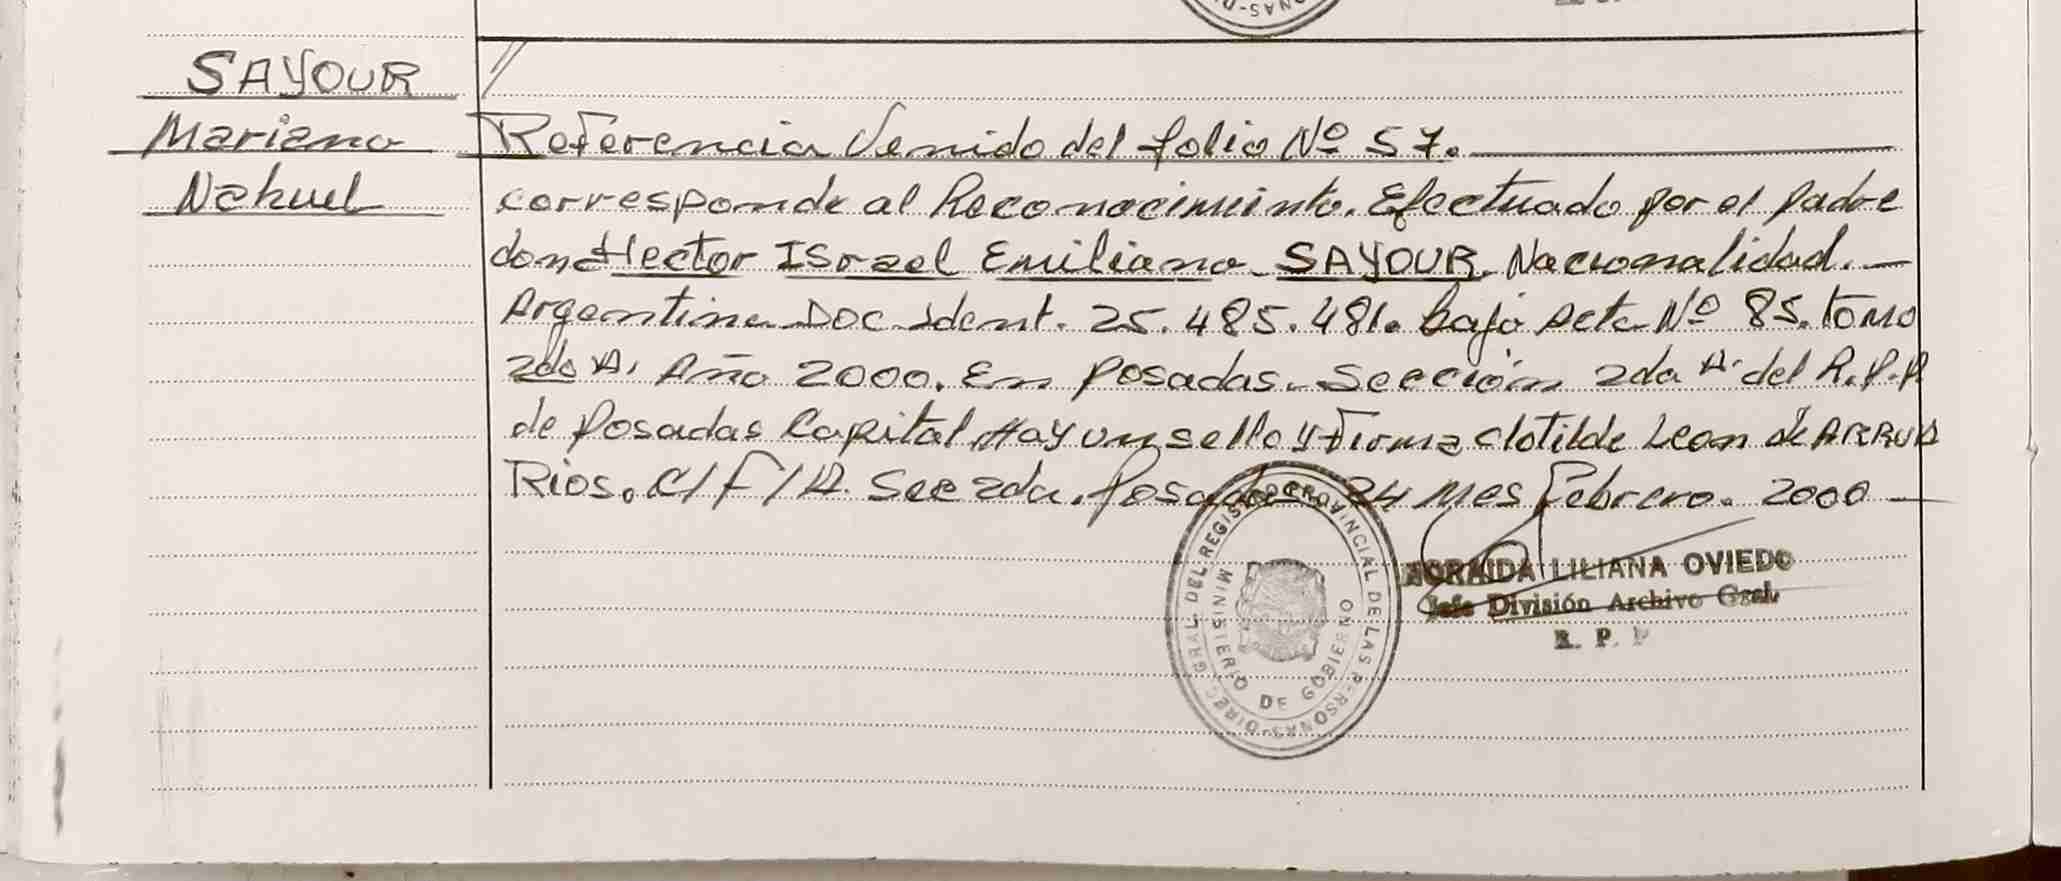 SAYOUR
Mariano
Nahuel
Referencia Venido del folio Nº 57.
corresponde al Reconocimiento. Efectuado por el padre
don Hector ISrael Emiliano SAYOUR. Nacionalidad.
Argentina Doc Ident. 25.485.481. bajo Acta Nº 85. tomo
2do A. Año 2000. En posadas. Sección 2da A. del R.P.P
de Posadas Capital. Hay un sello y Firma Clotilde Leon de
Rios. C/F/A. Sec 2da. Posadas 24 Mes Febrero. 2000
DIREC. GRAL. DEL REGISTRO PROVINCIAL DE LAS PERSONAS
MINISTERIO DE GOBIERNO
ZORAIDA LILIANA OVIEDO
Jefe División Archivo Gral.
R. P. P